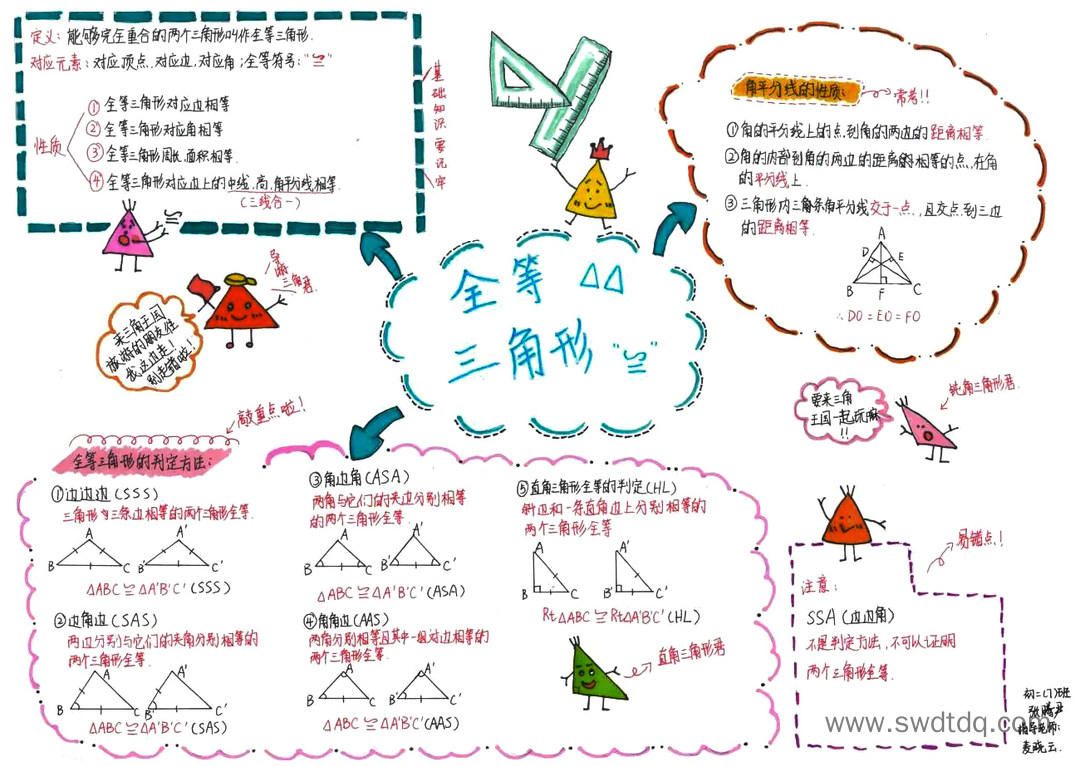 定义：能够完全重合的两个三角形叫作全等三角形.
对应元素：对应顶点、对应边,对应角;全等符号："≌"
性质
① 全等三角形对应边相等
② 全等三角形对应角相等
③ 全等三角形周长.面积相等.
④ 全等三角形对应边上的中线.高.角平分线相等.
(三线合一)
基础知识要记牢
≌
导游三角君.
来三角王国
旅游的朋友往
我这边走!
别走错啦!
全等 △△
三角形 "≌"
角平分线的性质:
常考!!
①角的平分线上的点,到角的两边的距离相等.
②角的内部到角的两边的距离相等的点,在角
的平分线上.
③三角形内三角条角平分线交于一点,且交点到三边
的距离相等.
A
D E
B F C
∴DO=EO=FO
要来三角
王国一起玩嘛
!!
钝角三角形君.
敲重点啦!
全等三角形的判定方法:
①边边边(SSS)
三角形的三条边相等的两个三角形全等.
A A'
B C B' C'
△ABC≌△A'B'C'(SSS)
②边角边(SAS)
两边分别与它们的夹角分别相等的
两个三角形全等.
A A'
B C B' C'
△ABC≌△A'B'C'(SAS)
③角边角(ASA)
两角与它们的夹边分别相等
的两个三角形全等.
A A'
B C B' C'
△ABC≌△A'B'C'(ASA)
④角角边(AAS)
两角分别相等且其中一组对边相等的
两个三角形全等.
A A'
B C B' C'
△ABC≌△A'B'C'(AAS)
⑤直角三角形全等的判定(HL)
斜边和一条直角边上分别相等的
两个三角形全等
A A'
B C B' C'
Rt△ABC≌Rt△A'B'C'(HL)
直角三角形君
易错点!
注意:
SSA(边边角)
不是判定方法,不可以证明
两个三角形全等.
初二(1)班
指导老师:
www.swdtdq.com